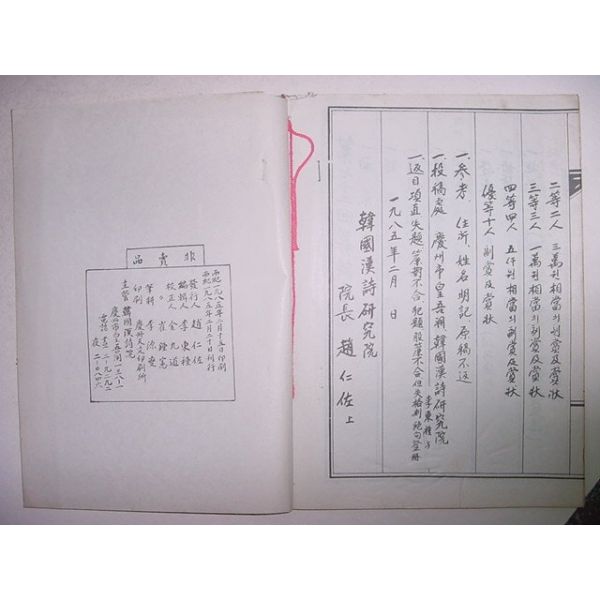 二等二人 三萬원相當의副賞及賞狀
三等三人 一萬원相當의副賞及賞狀
四等四人 五仟원相當의副賞及賞狀
優等十人 副賞及賞狀
一. 參考 住所, 姓名明記, 原稿不返
一. 投稿處 慶州市皇吾洞 韓國漢詩研究院
李東種
一. 返目項直失題 簾對不合 犯題
一九八五年二月 日
韓國漢詩研究院
院長 趙仁佐 上
非賣品
西紀一九八五年二月十五日印刷
西紀一九八五年二月二十日刊行
發行人 趙仁佐
編輯人 李東種
校正人 金九道
〃 崔鍾寓
筆耕 李源
印刷 慶州 印刷所
主管 韓國漢詩院
慶州市皇吾洞一三八-一
電話 晝 二-九二九二
夜 二-〇八四六